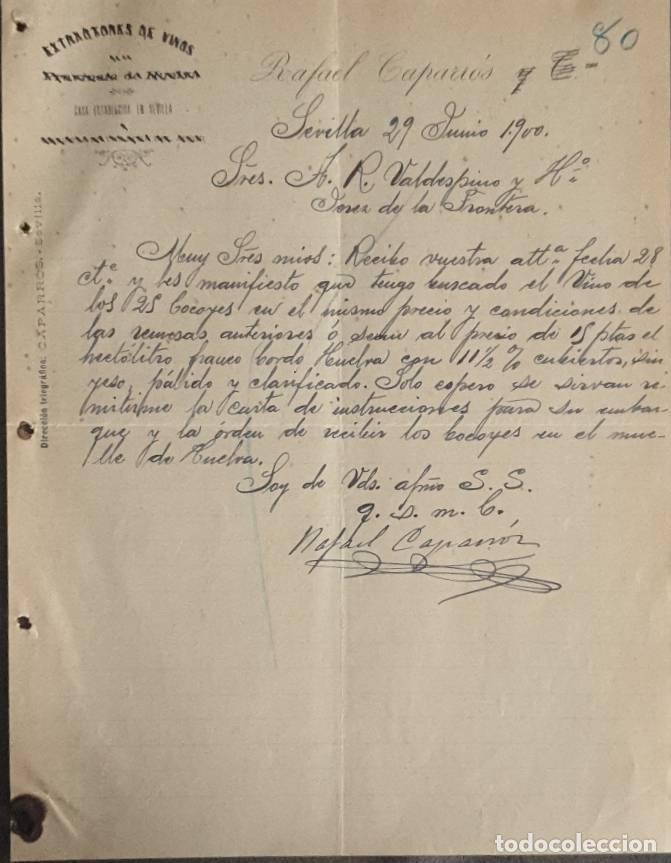 EXTRACTORES DE VINOS
CASA ESTABLECIDA EN SEVILLA
80
Rafael Caparrós y C
Sevilla 29 Junio 1.900.
Sres. A. R. Valdespino y Hº
Jerez de la Frontera.
Dirección telegráfica: CAPARROS.-Sevilla.
Muy Sres mios: Recibo vuestra attª fecha 28
ctº y les manifiesto que tengo buscado el Vino de
los 25 bocoyes en el mismo precio y condiciones de
las remesas anteriores ó sean al precio de 15 ptas el
hectólitro franco bordo Huelva con 11½ % cubiertos, sin
yeso, pálido y clarificado. Solo espero se sirvan re-
mitirme la carta de instrucciones para su embar-
que y la órden de recibir los bocoyes en el mue-
lle de Huelva.
Soy de Vds. afmo S. S.
q. s. m. b.
Rafael Caparrós
todocoleccion